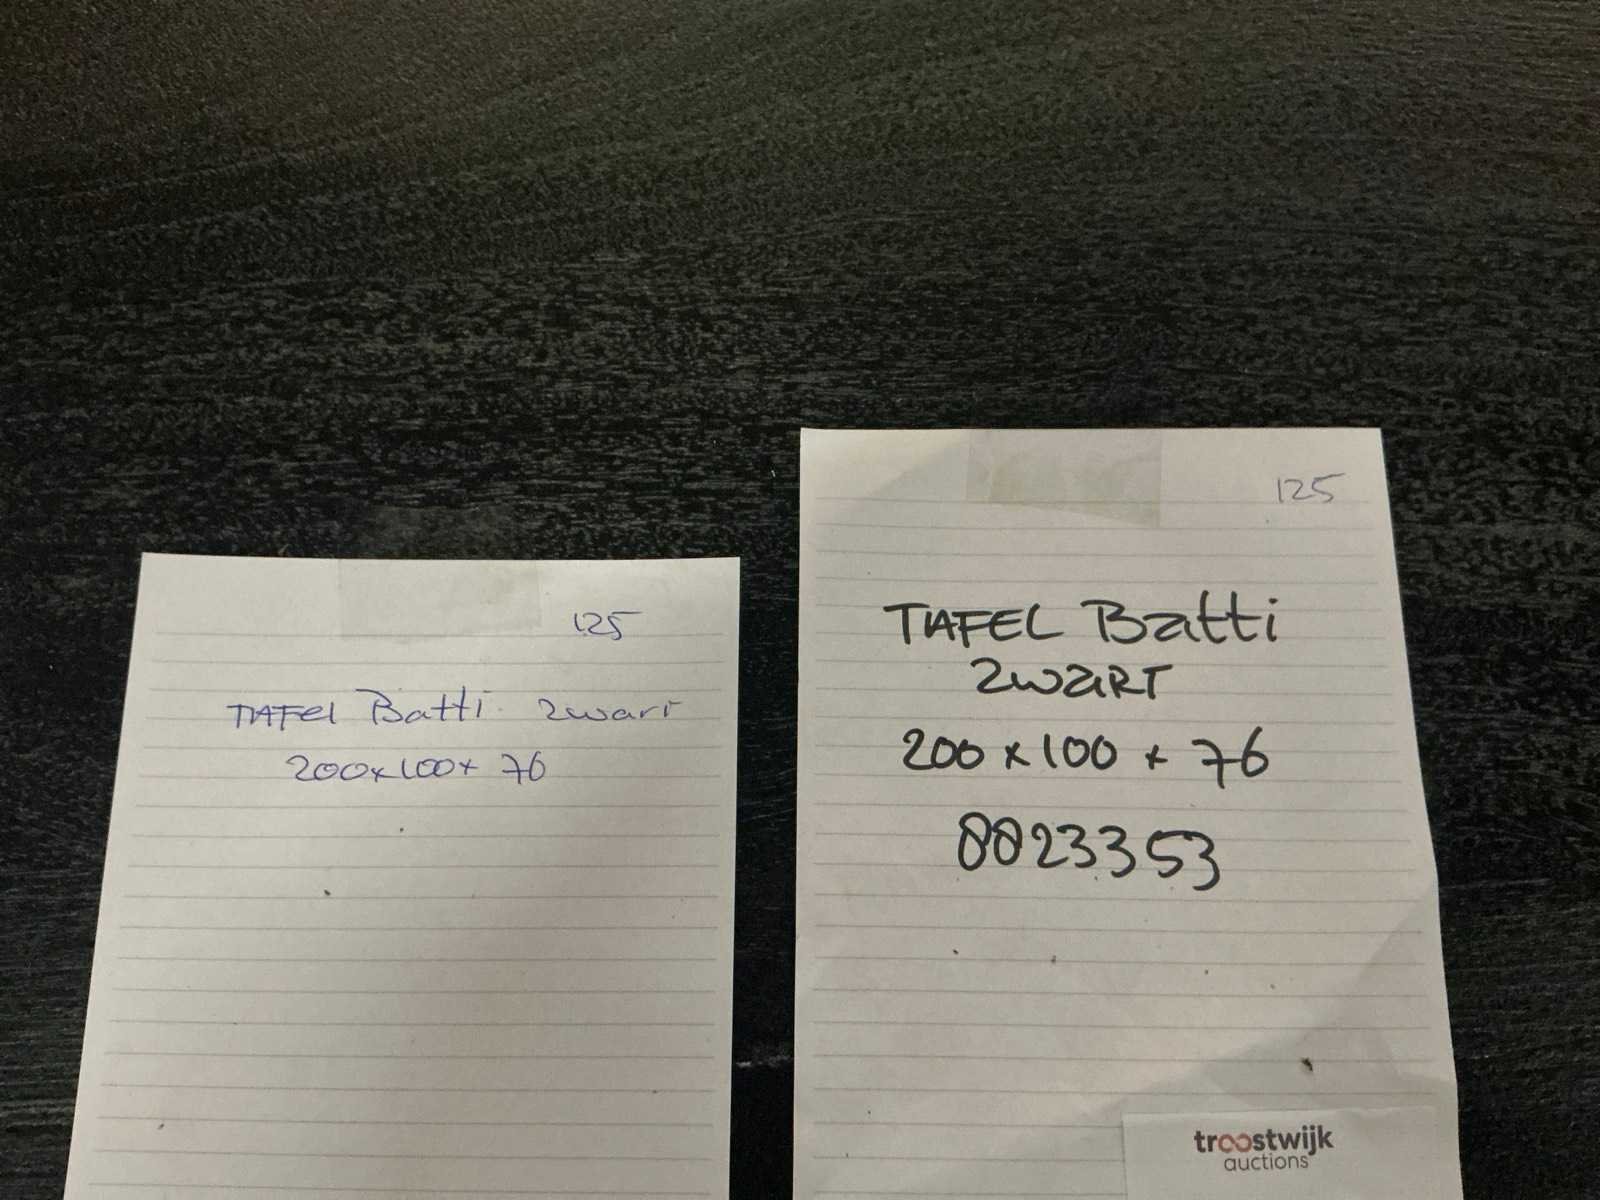 125
TAFEL Batti zwart
200x100x 76
125
TAFEL Batti
zwaRT
200 x 100 x 76
0023353
troostwijk
auctions